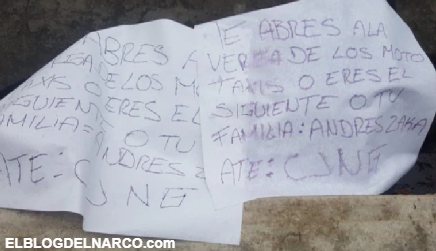 ABRES A
VERGA DE LOS M
TAXIS O
SIGUIENTE ERES EL
FAMILIA: O TU
ANDRES Z
ATE: CJNG
TE ABRES ALA
VERGA DE LOS MOTO
TAXIS O ERES EL
SIGUIENTE O TU
FAMILIA: ANDRES ZAKA
ATE: CJNG
ELBLOGDELNARCO.COM